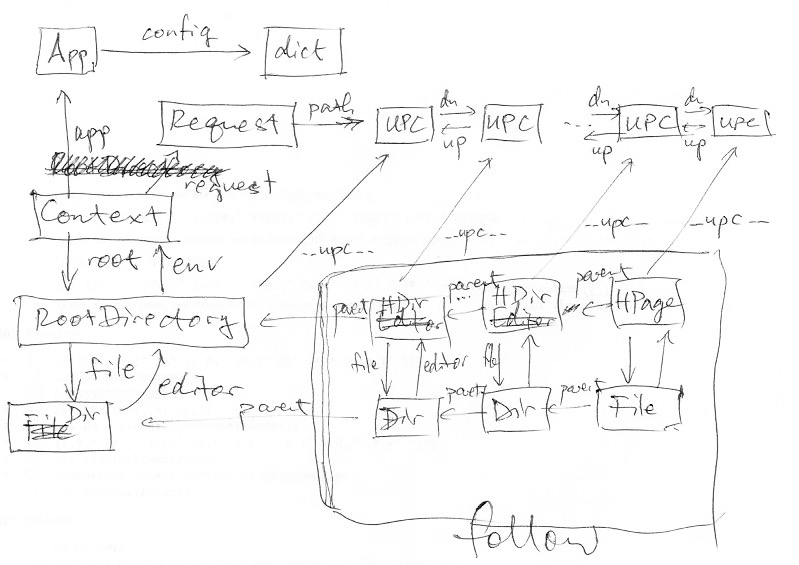 App config dict
Request path UPC dn up UPC ... dn up UPC dn up UPC
app
request
Context
root env
--upc-- --upc-- --upc-- --upc--
RootDirectory
parent HDir parent ... HDir parent HPage
file editor
file editor
Dir parent Dir parent Dir parent File
follow